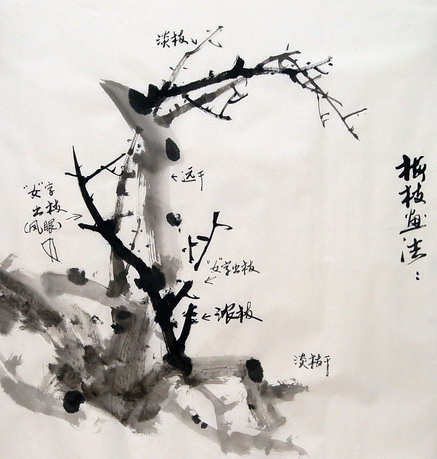 梅枝画法：
淡枝
←远干
"女"字
出枝
(凤眼)
"女"字出枝
←浓枝
淡枝干